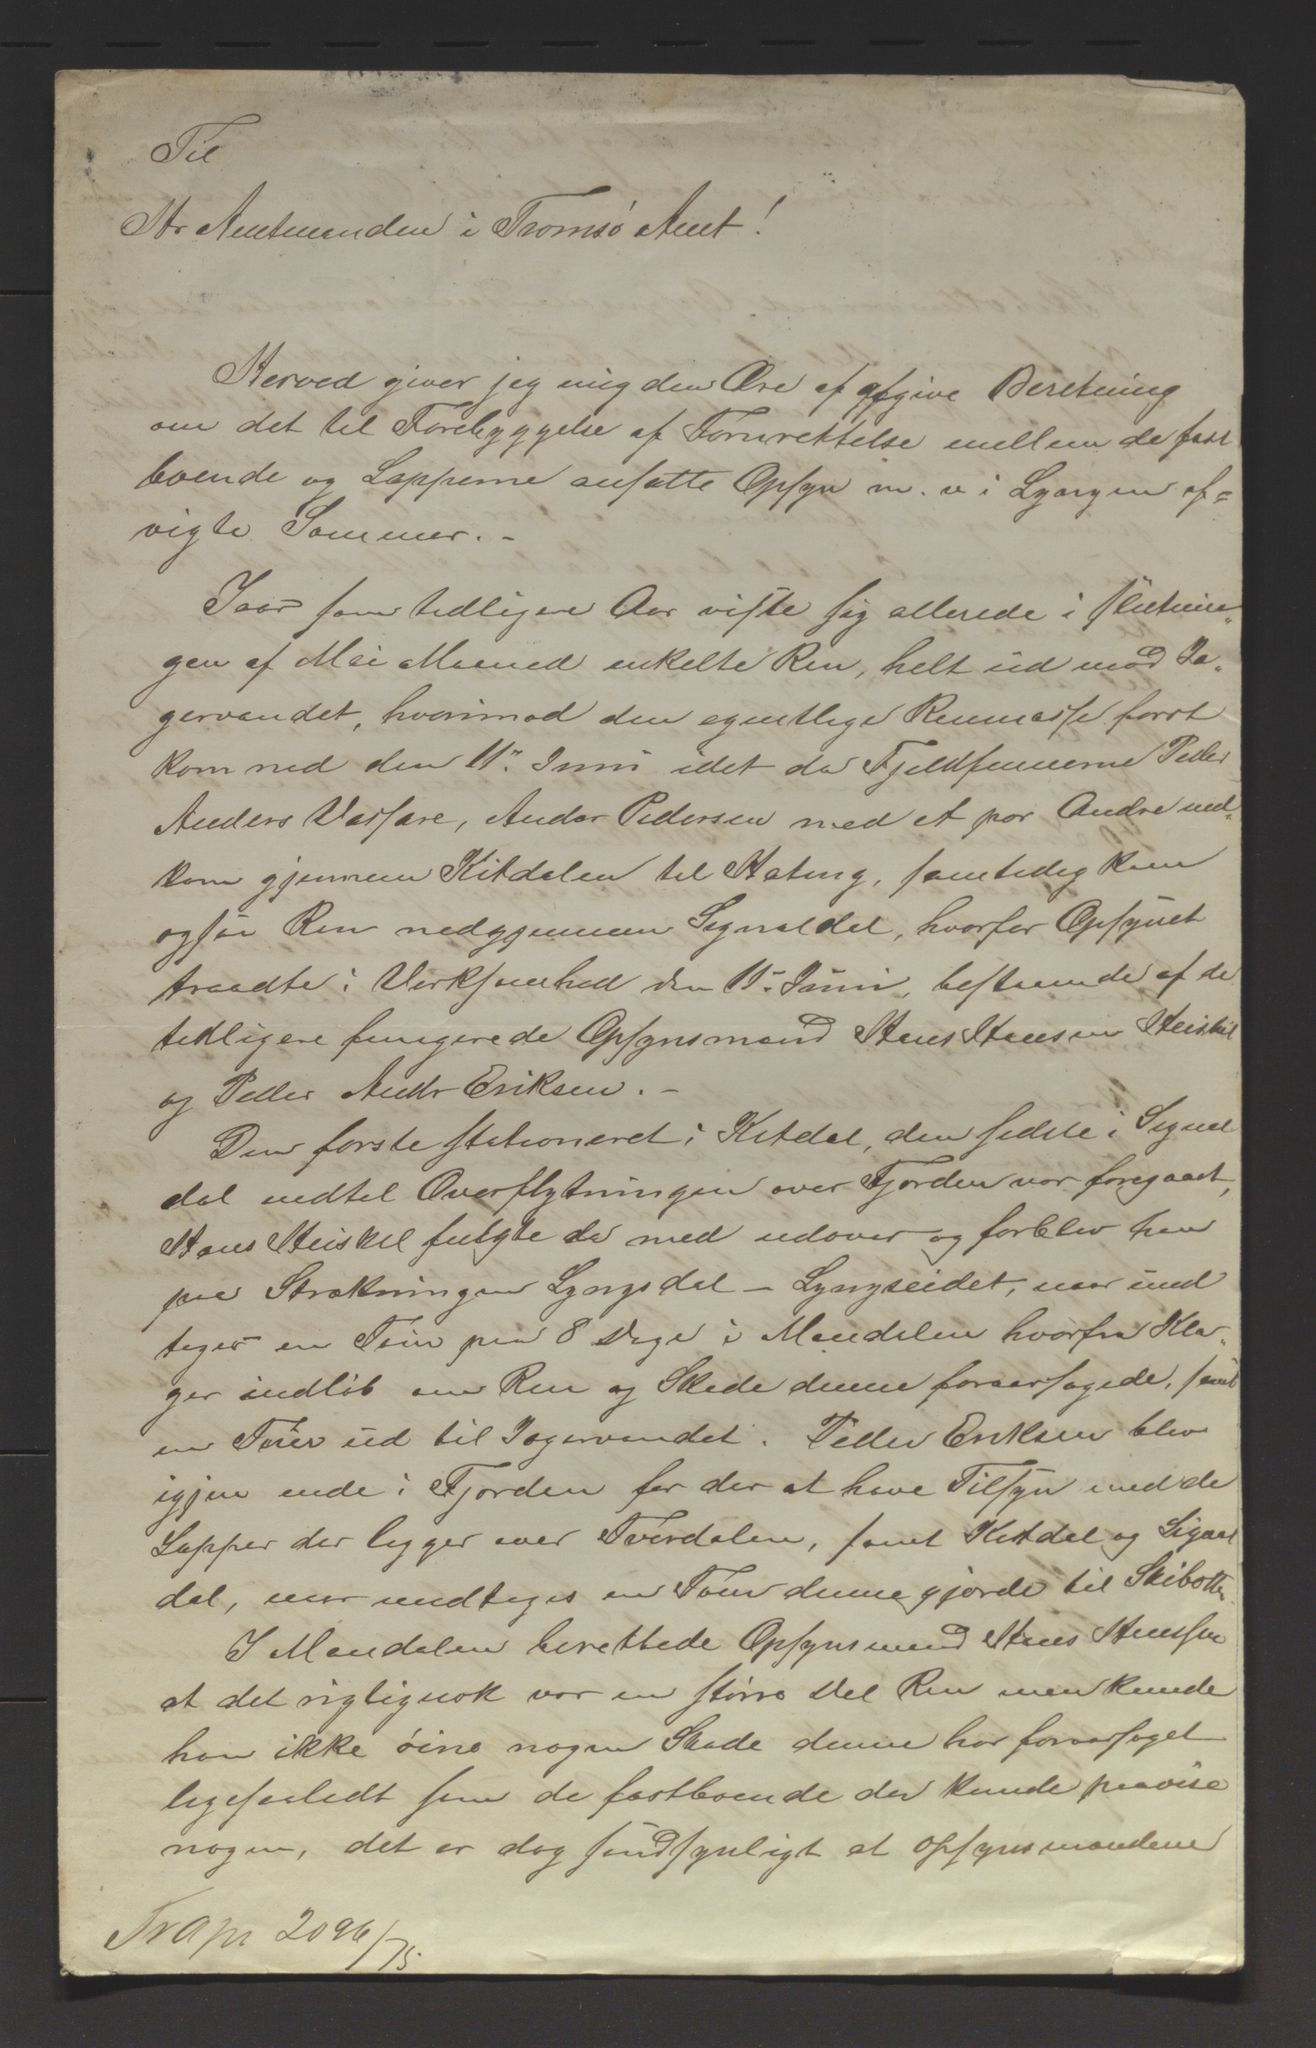 Til
Hr Amtmanden i Tromsö Amt!
Herved giver jeg mig den Ære af afgive Beretning
om det til Forebyggelse af Fornrettelse mellem de fast
boende og Lapperne ansatte Opsyn m. v i Lyngen af=
vigte Sommer. -
Iaar som tidligere Aar viste sig allerede i slutnin„
gen af Mai Maaned enkelte Ren, helt ud mod Ja„
gervandet, hvorimod den egentlige Renmasse først
kom ned den 11te Juni idet da Fjeldfinnerne Peder
Anders Vasare, Ander Pedersen med et par Andre ned„
kom gjennem Kitdalen til Hating, samtidig kom
ogsaa Ren nedgjennem Signaldal, hvorfor Opsynet
traadte i Virksomhed den 11te Juni, bestaaende af de
tidligere fungerede Opsynsmænd Hans Hansen Heiskel
og Peder Andr Eriksen. -
Den første stationeret i Kitdal, den sidste i Signal
dal indtil Overflytningen over Fjorden var foregaaet,
Hans Heiskel fulgte da med udover og forblev han
paa Strækningen Lyngsdal - Lyngseidet, naar und
tages en Tour paa 8 Dage i Mandalen hvorfra Kla„
ger indløb om Ren og Skade denne foraarsagede, samt
en Tour ud til Jagervandet. Peder Eriksen blev
igjen inde i Fjorden for der at have Tilsyn med de
Lapper der ligger over Tverdalen, samt Kitdal og Signal
dal, naar undtages en Tour denne gjorde til Skibotten.
I Mandalen berettede Opsynsmand Hans Hansen
at det rigtignok var en större Del Ren men kunde
han ikke öine nogen Skade denne har foraarsaget
ligesaalidt som de fastboende der kunde paavise
nogen, det er dog sandsynligt at opsynsmandens
Tr apr 2096/75